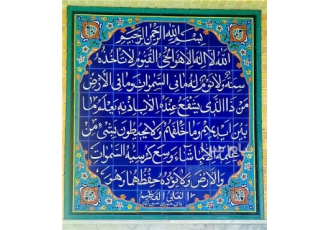 بسم الله الرحمن الرحيم
الله لا اله الا هو الحي القيوم لا تاخذه
سنة ولا نوم له ما في السموات وما في الارض
من ذا الذي يشفع عنده الا باذنه يعلم ما
بين ايديهم وما خلفهم ولا يحيطون بشيء من
علمه الا بما شاء وسع كرسيه السموات
والارض ولا يؤده حفظهما وهو
العلي العظيم